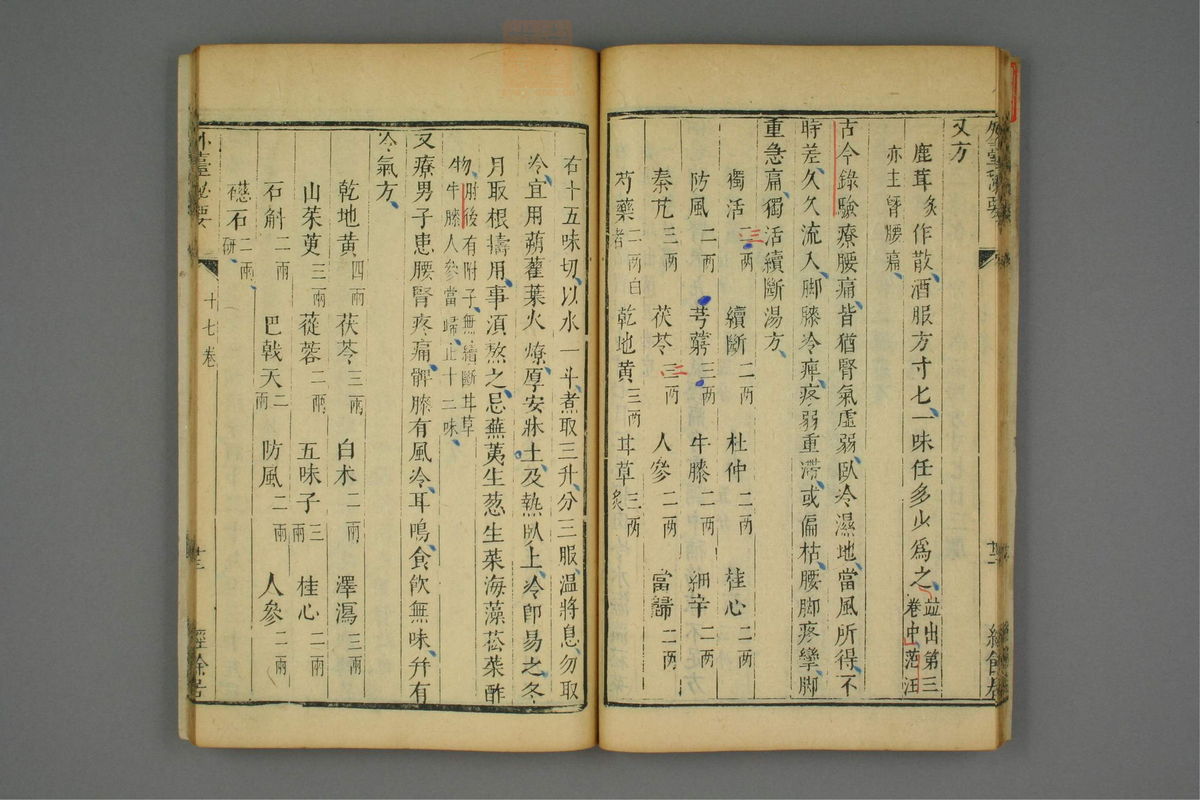 又方
鹿茸炙作散酒服方寸匕一味任多少爲之竝出第三卷中范汪
亦主腎腰痛
古今錄驗療腰痛皆猶腎氣虛弱臥冷濕地當風所得不
時差久久流入脚膝冷痺疼弱重滯或偏枯腰脚疼攣脚
重急痛獨活續斷湯方
獨活二兩 續斷二兩 杜仲二兩 桂心二兩
防風二兩 芎藭三兩 牛膝二兩 細辛二兩
秦艽三兩 茯苓三兩 人參二兩 當歸二兩
芍藥二兩白者 乾地黄三兩 甘草三兩炙
右十五味切以水一斗煮取三升分三服温將息勿取
冷宜用蒴藋葉火燎厚安牀上及熱臥上冷卽易之冬
月取根擣用事湏熬之忌蕪荑生葱生菜海藻菘菜酢
物肘後有附子無續斷甘草牛膝人參當歸止十二味
又療男子患腰腎疼痛髀膝有風冷耳鳴食飲無味幷有
冷氣方
乾地黄四兩 茯苓三兩 白术二兩 澤瀉三兩
山茱萸三兩 蓯蓉二兩 五味子三兩 桂心二兩
石斛二兩 巴戟天二兩 防風二兩 人參二兩
礠石二兩研
外臺祕要 十七卷 廿三 經餘居